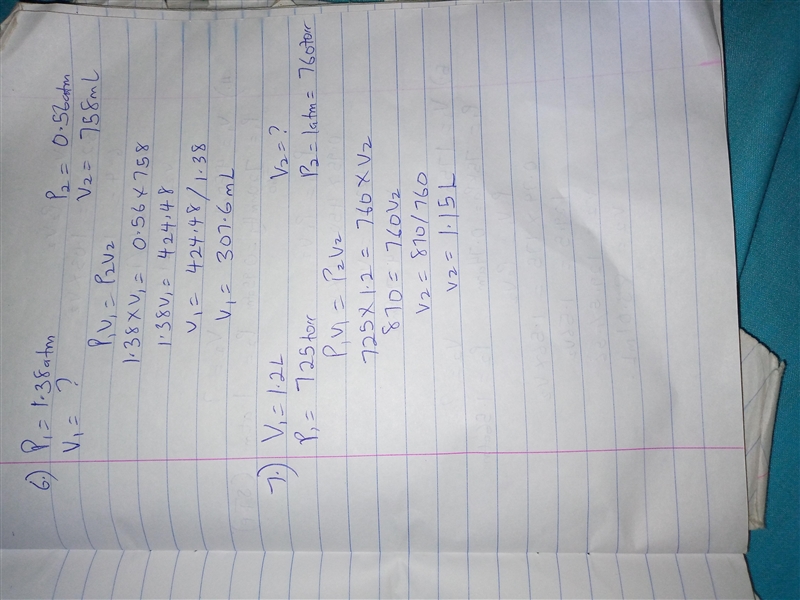 6.) P₁ = 1.38atm P₂ = 0.56atm
V₁ = ? V₂ = 758mL
P₁V₁ = P₂V₂
1.38 x V₁ = 0.56 x 758
1.38V₁ = 424.48
V₁ = 424.48 / 1.38
V₁ = 307.6mL
7.) V₁ = 1.2L V₂ = ?
P₁ = 725torr P₂ = 1atm = 760torr
P₁V₁ = P₂V₂
725 x 1.2 = 760 x V₂
870 = 760V₂
V₂ = 870/760
V₂ = 1.15L